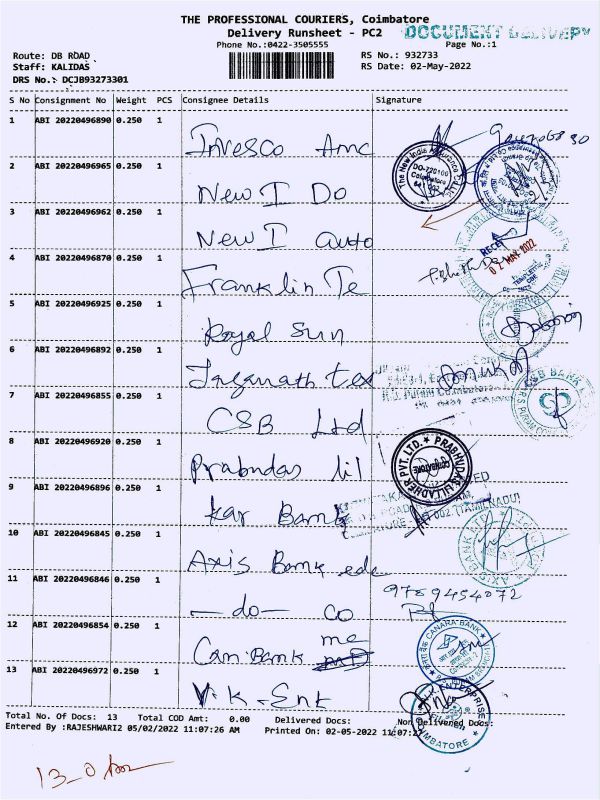 THE PROFESSIONAL COURIERS, Coimbatore
Delivery Runsheet - PC2
DOCUMENT DELIVERY
Phone No.:0422-3505555
Page No.:1
Route: DB ROAD
RS No.: 932733
Staff: KALIDAS
RS Date: 02-May-2022
DRS No.: DCJB93273301
S No Consignment No Weight PCS Consignee Details Signature
1 ABI 20220496890 0.250 1 Invesco Amc
2 ABI 20220496965 0.250 1 New I Do
The New India Assurance
DO-720100
Coimbatore
3 ABI 20220496962 0.250 1 New I auto
02 MAY 2022
4 ABI 20220496870 0.250 1 Franklin Te
5 ABI 20220496925 0.250 1 Royal Sun
6 ABI 20220496892 0.250 1 Jaganath tex
7 ABI 20220496855 0.250 1 CSB Ltd
CSB BANK
8 ABI 20220496920 0.250 1 Prabudas lil
PRABHUDAS LILLADHER PVT. LTD.
COIMBATORE
9 ABI 20220496896 0.250 1 kar Bank
002 (TAMILNADU)
10 ABI 20220496845 0.250 1 Axis Bank
AXIS BANK
11 ABI 20220496846 0.250 1 -do- CO
9789454072
12 ABI 20220496854 0.250 1 Can Bank me
CANARA BANK
13 ABI 20220496972 0.250 1 V.K. Ent
V.K. ENTERPRISE
COIMBATORE
Total No. Of Docs: 13 Total COD Amt: 0.00 Delivered Docs: Non Delivered Docs:
Entered By :RAJESHWARI2 05/02/2022 11:07:26 AM Printed On: 02-05-2022 11:07:27